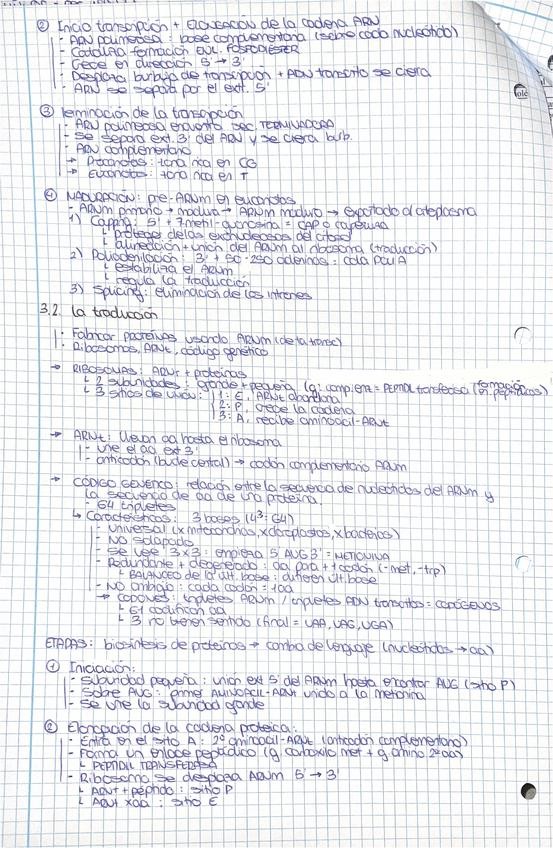 ② Inicio transcripción + Elongación de la cadena ARN
- ARN polimerasa: base complementaria (sobre cada nucleótido)
- Cataliza formación enl. FOSFODIÉSTER
- Crece en dirección 5' → 3'
- Desplaza burbuja de transcripción + ADN transcrito se cierra
- ARN se separa por el ext. 5'
③ Terminación de la transcripción
- ARN polimerasa encuentra sec. TERMINADORA
- Se separa ext. 3' del ARN y se cierra burb.
- ARN complementario
→ Procariotas: zona rica en CG
→ Eucariotas: zona rica en T
④ MADURACIÓN: pre-ARNm en eucariotas
- ARNm primario → madura → ARNm maduro → exportado al citoplasma
1) Capping: 5' + 7-metil-guanosina = CAP o caperuza
↳ protege de las exonucleasas del citosol
↳ dirección + unión del ARNm al ribosoma (traducción)
2) Poliadenilación: 3' + 50-250 adeninas = cola Poli A
↳ estabiliza el ARNm
↳ regula la traducción
3) Splicing: eliminación de los intrones
3.2. La traducción
- Fabricar proteínas usando ARNm (de la transc)
- Ribosomas, ARNt, código genético
→ RIBOSOMAS: ARNr + proteínas
↳ 2 subunidades: grande + pequeña (g: comp. = PEPTIDIL transferasa (formación enl. peptídicos)
↳ 3 sitios de unión: 1: E, ARNt abandona
2: P, crece la cadena
3: A, recibe aminoacil-ARNt
→ ARNt: llevan aa hasta el ribosoma
- une el aa ext 3'
- anticodón (bucle central) → codón complementario ARNm
→ CÓDIGO GENÉTICO: relación entre la secuencia de nucleótidos del ARNm y
la secuencia de aa de una proteína.
- 64 tripletes
↳ Características: 3 bases (4³=64)
- Universal (x mitocondrias, x cloroplastos, x bacterias)
- No solapado
- Se lee 3x3: empieza 5' AUG 3' = METIONINA
- Redundante + degenerado: aa para + 1 codón (-met, -trp)
↳ BALANCEO de la últ. base: difieren últ. base
- NO ambiguo: cada codón = 1aa
→ CODONES: tripletes ARNm / tripletes ADN transcritos = CODÓGENOS
↳ 61 codifican aa
↳ 3 no tienen sentido (final = UAA, UAG, UGA)
ETAPAS: biosíntesis de proteínas → cambia de lenguaje (nucleótidos → aa)
① Iniciación:
- Subunidad pequeña: unión ext 5' del ARNm hasta encontrar AUG (sitio P)
- Sobre AUG: primer AMINOACIL-ARNt unido a la metionina
- Se une la subunidad grande
② Elongación de la cadena proteica:
- Entra en el sitio A: 2º aminoacil-ARNt (anticodón complementario)
- Forma un enlace peptídico (g. carboxilo met + g. amino 2º aa)
↳ PEPTIDIL TRANSFERASA
- Ribosoma se desplaza ARNm 5' → 3'
↳ ARNt + péptido: sitio P
↳ ARNt x aa: sitio E